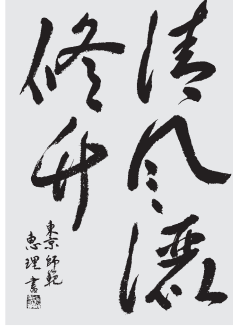 清風灑
修竹
東京師範
惠理書